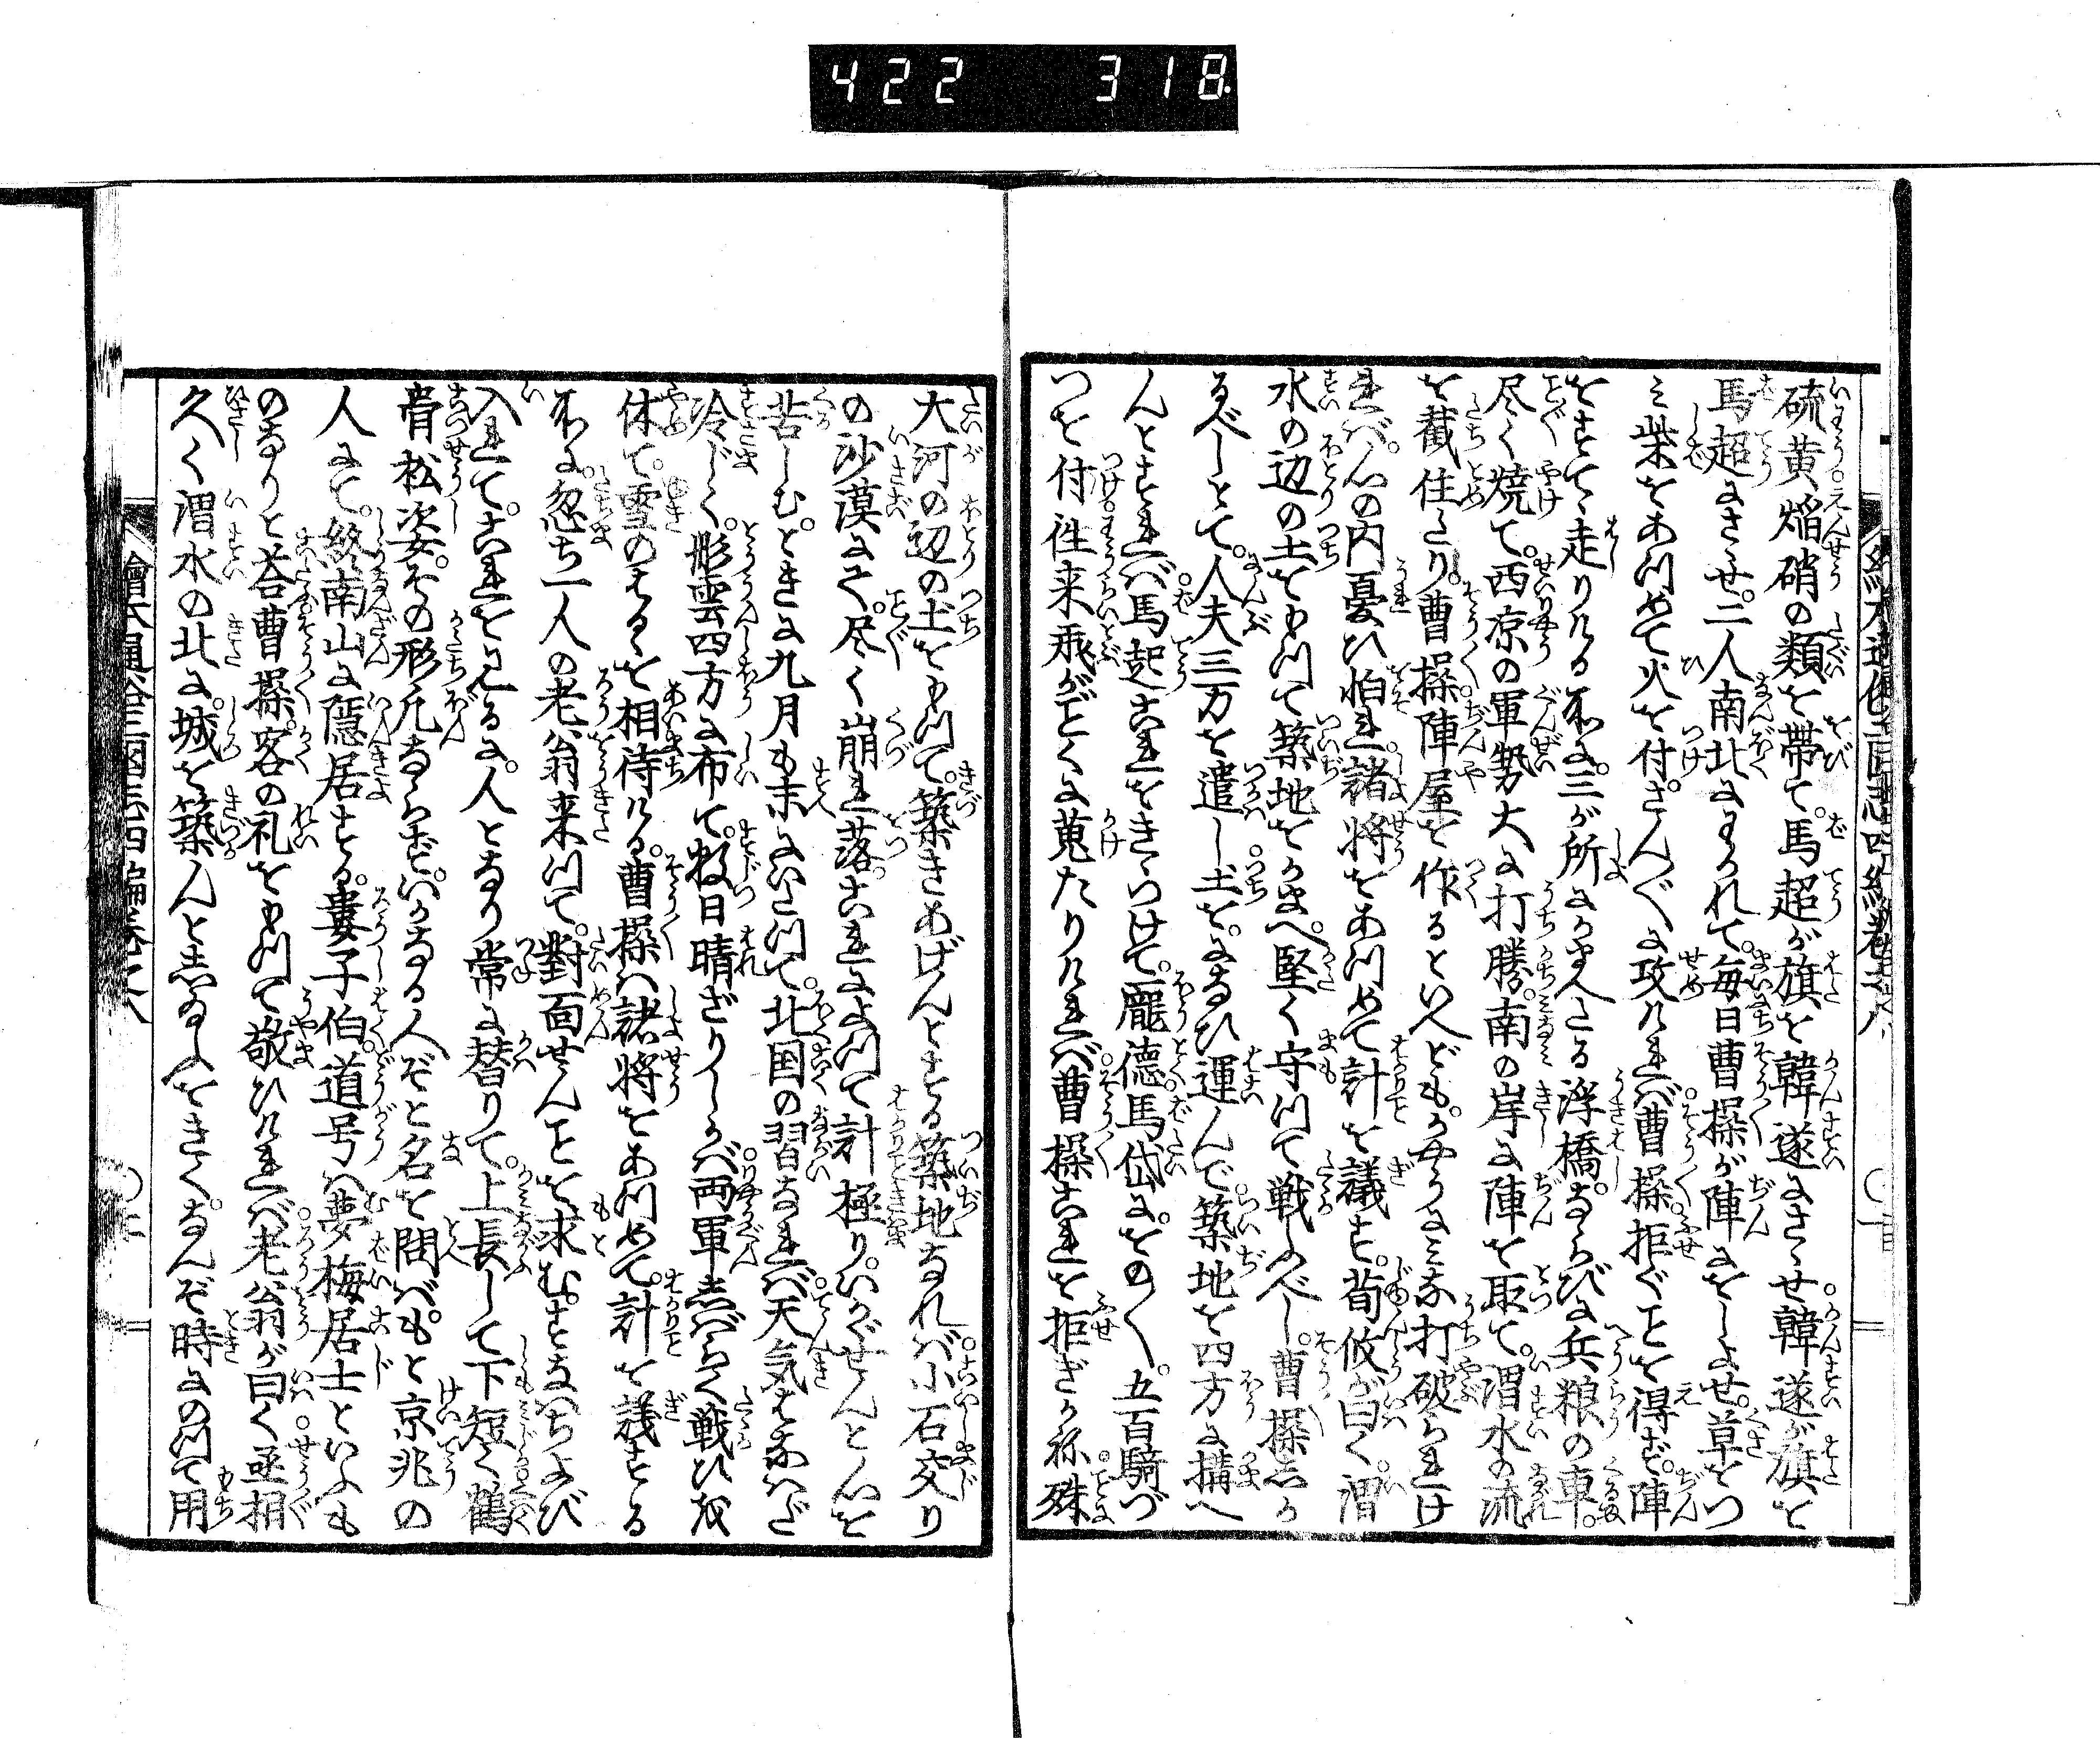 422 318
硫黄焔硝の類を帯て。馬超が旗を韓遂にさゝせ韓遂が旗を
馬超にさゝせ。二人南北にわかれて。毎日曹操が陣におしよせ。草をつ
み柴をあつめて火を付。さん〴〵に攻ければ曹操拒ぐことを得ず。陣
をすてゝ走りける不に。三が所にかまへたる浮橋。ならびに兵粮の車。
尽く焼て。西凉の軍勢大に打勝。南の岸に陣を取て。渭水の流
を截住たり。曹操陣屋を作るといへども。かやうにみな打破られけ
れば。心の内憂ひ怕れ諸将をあつめて計を議す。荀攸が曰く渭
水の辺の土をもつて築地をかまへ。堅く守つて戦ふべし。曹操しか
るべしとて。人夫三万を遣し土を。になひ運んで築地を四方に搆へ
んとすれば馬超これをきゝつけて。龐徳馬岱に。をの〳〵。五百騎づ
つを付徃来飛がごとくに蒐たりければ曹操これを拒ぎかね殊
大河の辺の土をもつて。築きあげんとする築地なれば小石交り
の沙漠にて。尽く崩れ落。これによつて計極り。いかゞせんと心を
苦しむ。ときに九月も末にいたつて。北国の習なれば天気はなはだ
冷じく。彤雲四方に布て。数日晴ざりしかば両軍しばらく戦ひを
休て。雪のはるゝを相待ける。曹操は諸将をあつめて。計を議する
不に。忽ち一人の老翁来つて。對面せんことを求む。すなはちよび
入れて。これを見るに。人となり常に替りて。上長して下短く鶴
骨松姿。その形凡ならず。いかなる人ぞと名を問ば。もと京兆の
人にて。終南山に隠居する。婁子伯道号は夢梅居士といふも
のなりと荅曹操。客の礼をもつて敬ひければ老翁が曰く丞相
久く渭水の北に。城を築んとし給ふときく。なんぞ時にのつて用